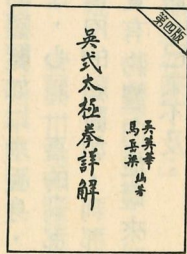 第四版
吳式太極拳詳解
吳英華
馬岳樑 編著